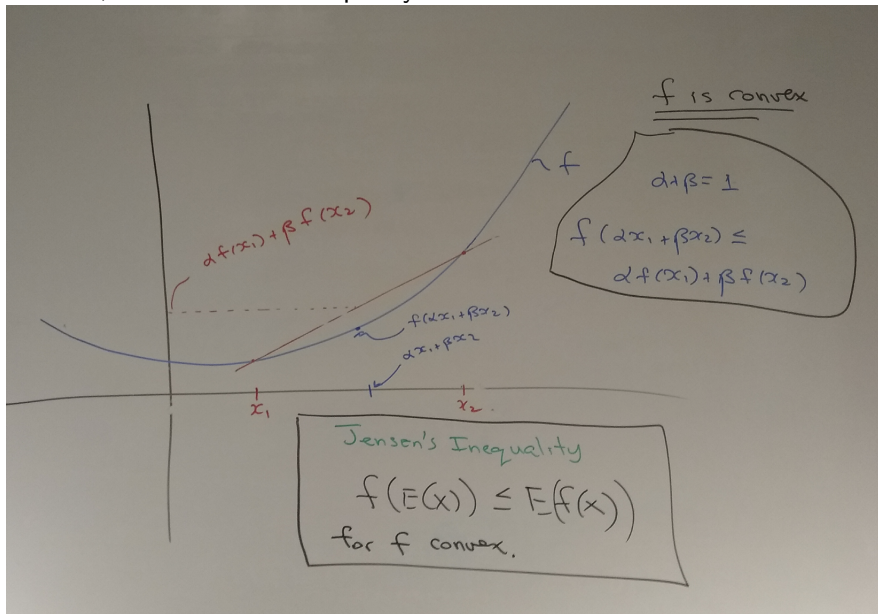 f is convex
α+β=1
f(αx₁+βx₂) ≤
αf(x₁)+βf(x₂)
f
αf(x₁)+βf(x₂)
f(αx₁+βx₂)
αx₁+βx₂
x₁
x₂
Jensen's Inequality
f(E(x)) ≤ E(f(x))
for f convex.